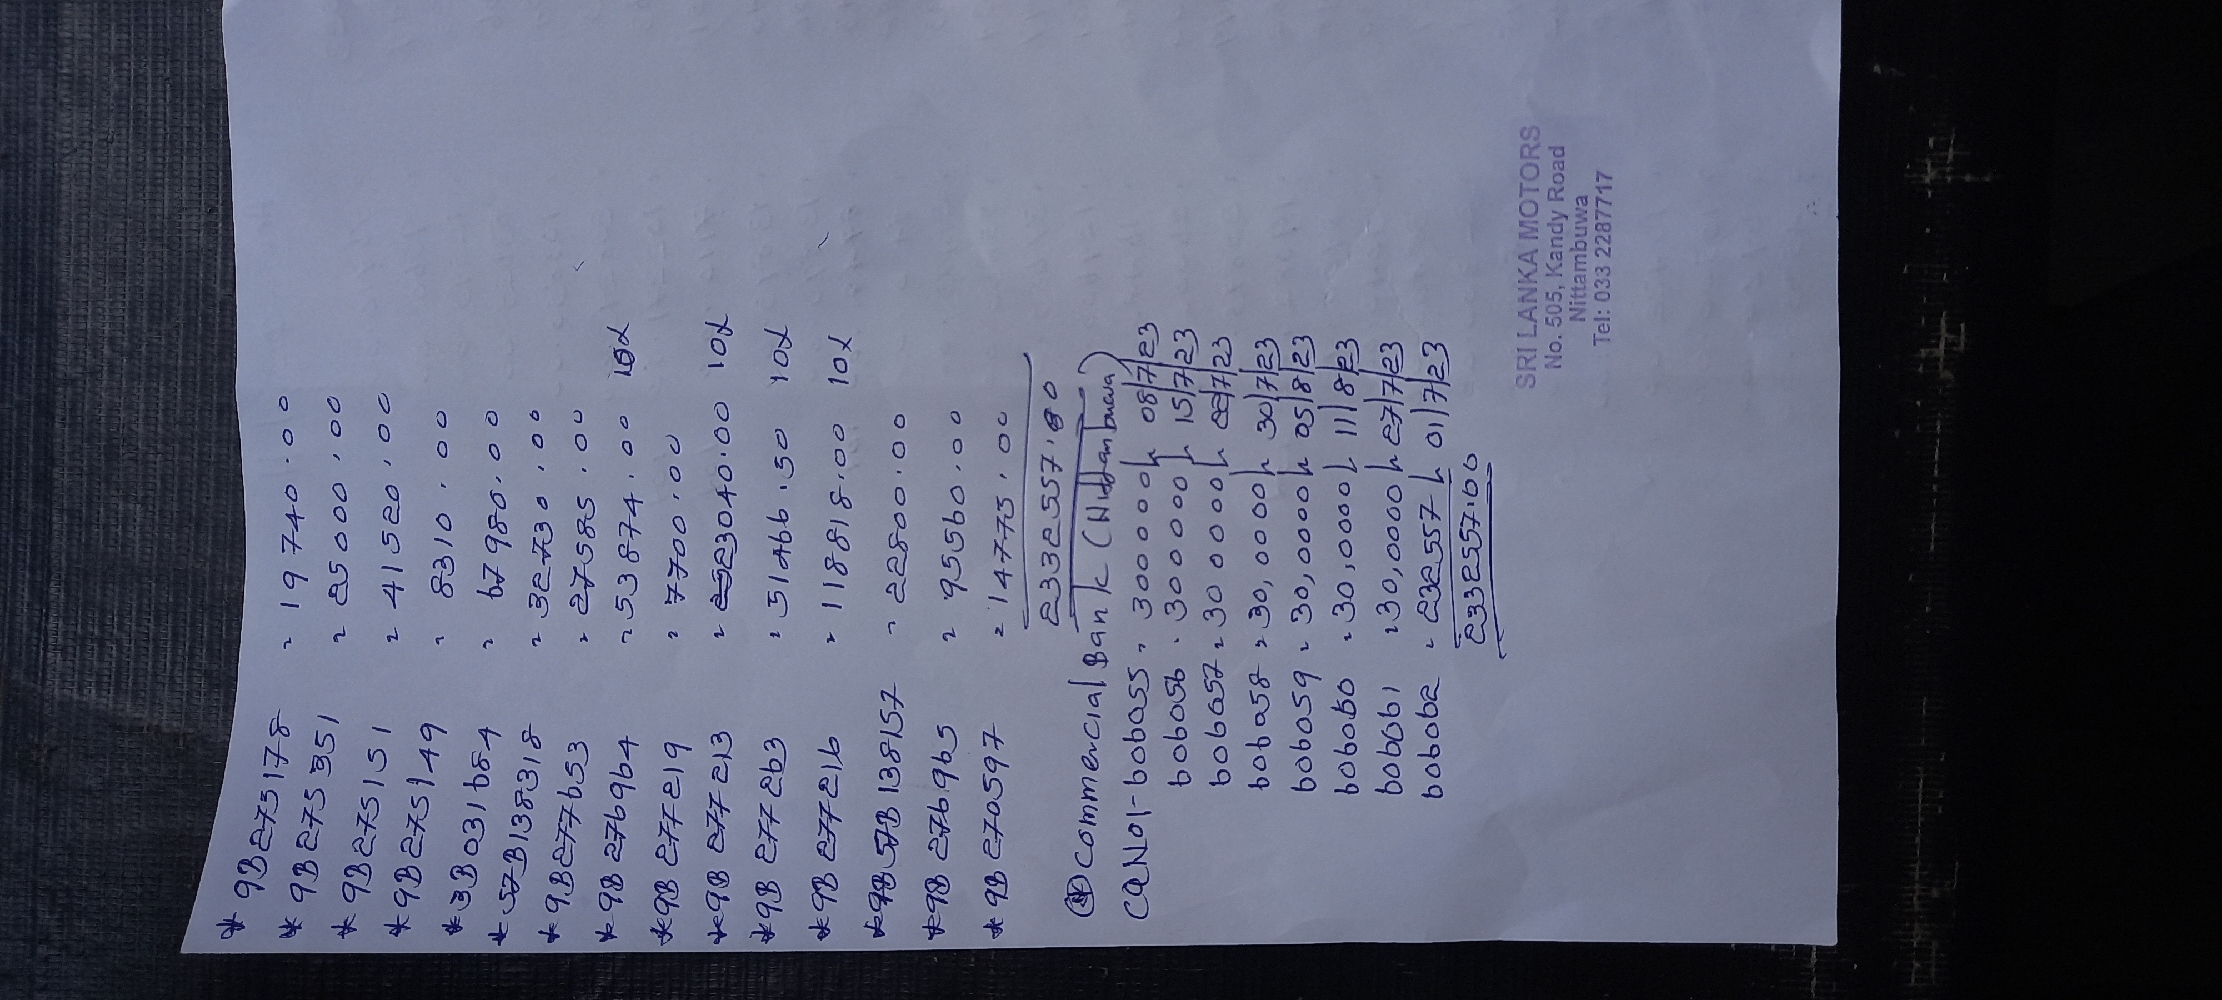 * 9B275178 = 19740.00
* 9B275351 = 25000.00
* 9B275151 = 41520.00
* 9B275149 = 8310.00
* 3B031684 = 67980.00
* 57B138318 = 32730.00
* 9B277653 = 27585.00
* 9B276964 = 53874.00 10%
* 9B277219 = 7700.00
* 9B277213 = 223040.00 10%
* 9B277263 = 51466.50 10%
* 9B277216 = 118818.00 10%
* 57B138157 = 22800.00
* 9B276965 = 9560.00
* 9B270597 = 14775.00
2332557.00
* Commercial Bank (Nittambuwa)
CAN01-606055 = 300000/- 08/7/23
606056 = 300000/- 15/7/23
606057 = 300000/- 22/7/23
606058 = 30,0000/- 30/7/23
606059 = 30,0000/- 05/8/23
606060 = 30,0000/- 11/8/23
606061 = 30,0000/- 27/7/23
606062 = 232557/- 01/7/23
2332557.00
SRI LANKA MOTORS
No. 505, Kandy Road
Nittambuwa
Tel: 033 2287717